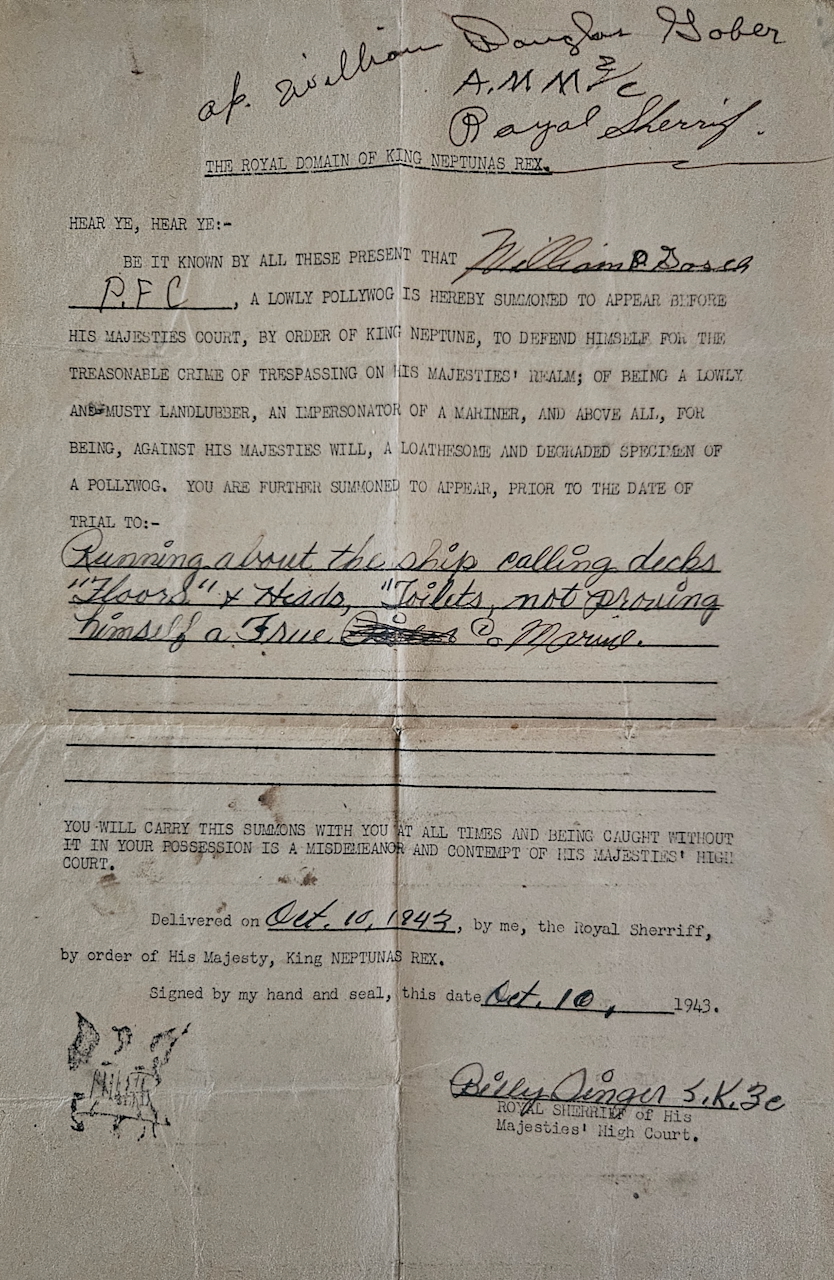 of. William Douglas Gober
A.M M 3/c
Royal Sherrif.
THE ROYAL DOMAIN OF KING NEPTUNAS REX.
HEAR YE, HEAR YE:-
BE IT KNOWN BY ALL THESE PRESENT THAT William
P.F.C, A LOWLY POLLYWOG IS HEREBY SUMMONED TO APPEAR BEFORE
HIS MAJESTIES COURT, BY ORDER OF KING NEPTUNE, TO DEFEND HIMSELF FOR THE
TREASONABLE CRIME OF TRESPASSING ON HIS MAJESTIES' REALM; OF BEING A LOWLY
AND MUSTY LANDLUBBER, AN IMPERSONATOR OF A MARINER, AND ABOVE ALL, FOR
BEING, AGAINST HIS MAJESTIES WILL, A LOATHESOME AND DEGRADED SPECIMEN OF
A POLLYWOG. YOU ARE FURTHER SUMMONED TO APPEAR, PRIOR TO THE DATE OF
TRIAL TO:-
Running about the ship calling decks
"Floors" & Heads, "Toilets, not proving
himself a True Marine.
YOU WILL CARRY THIS SUMMONS WITH YOU AT ALL TIMES AND BEING CAUGHT WITHOUT
IT IN YOUR POSSESSION IS A MISDEMEANOR AND CONTEMPT OF HIS MAJESTIES' HIGH
COURT.
Delivered on Oct. 10, 1943, by me, the Royal Sherriff,
by order of His Majesty, King NEPTUNAS REX.
Signed by my hand and seal, this date Oct. 10, 1943.
Billy Singer S.K.3c
ROYAL SHERRIFF of His
Majesties' High Court.